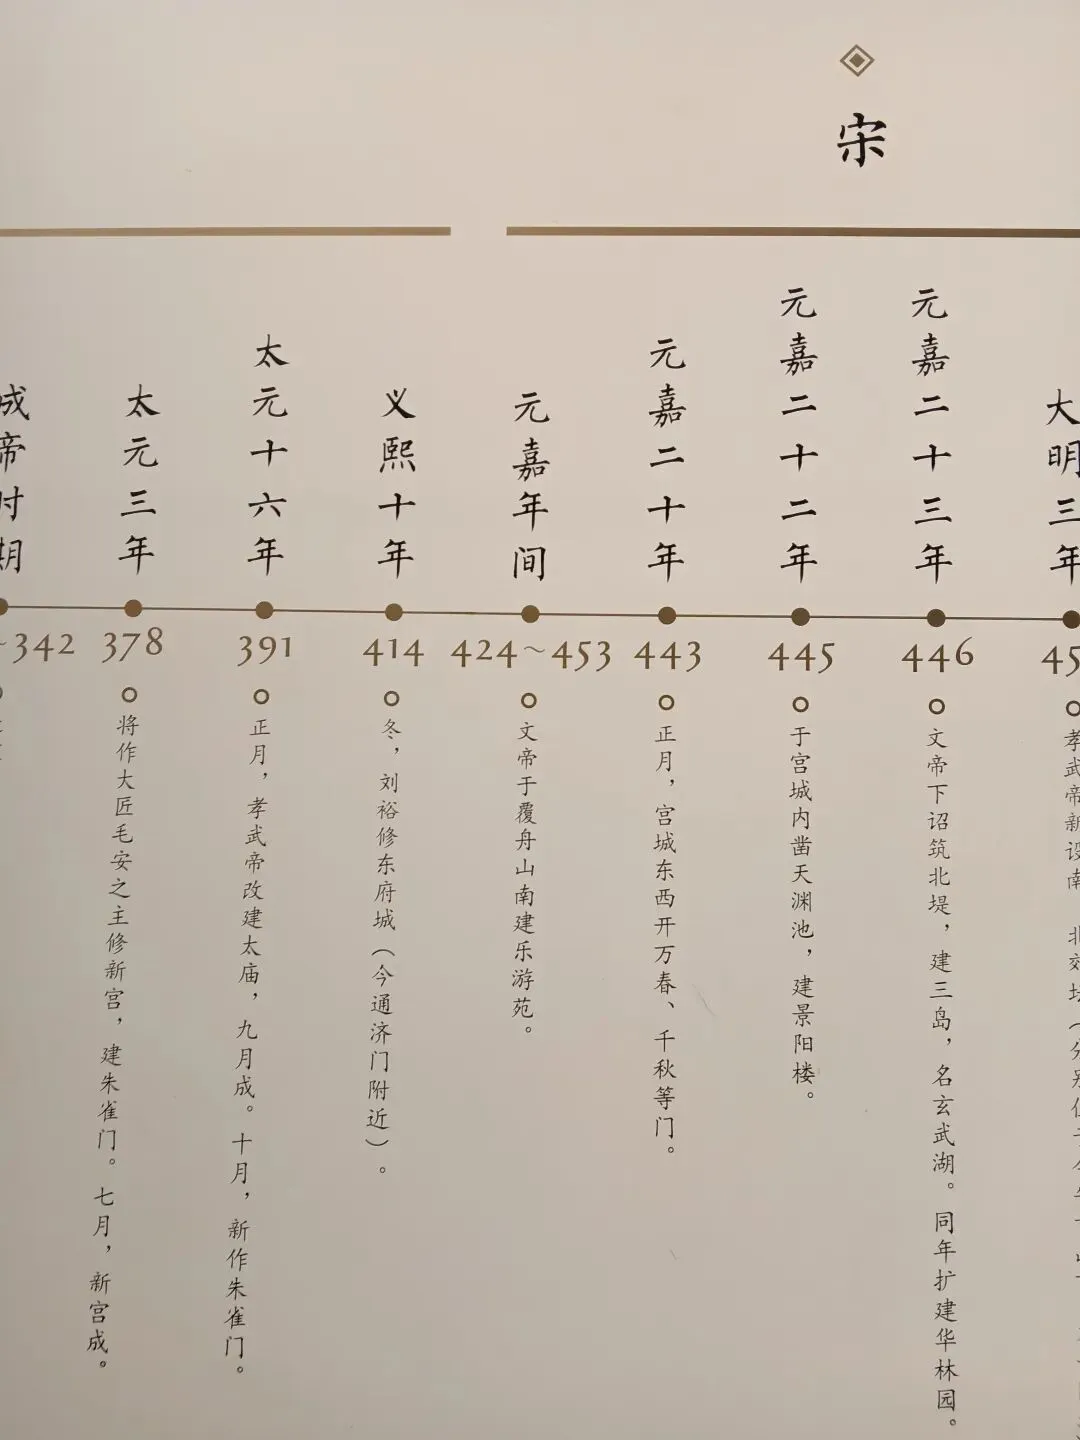 宋
成帝时期
~342
太元三年
378
将作大匠毛安之主修新宫，建朱雀门。七月，新宫成。
太元十六年
391
正月，孝武帝改建太庙，九月成。十月，新作朱雀门。
义熙十年
414
冬，刘裕修东府城（今通济门附近）。
元嘉年间
424~453
文帝于覆舟山南建乐游苑。
元嘉二十年
443
正月，宫城东西开万春、千秋等门。
元嘉二十二年
445
于宫城内凿天渊池，建景阳楼。
元嘉二十三年
446
文帝下诏筑北堤，建三岛，名玄武湖。同年扩建华林园。
大明三年
45
孝武帝新设南
北郊坛（分别位于今